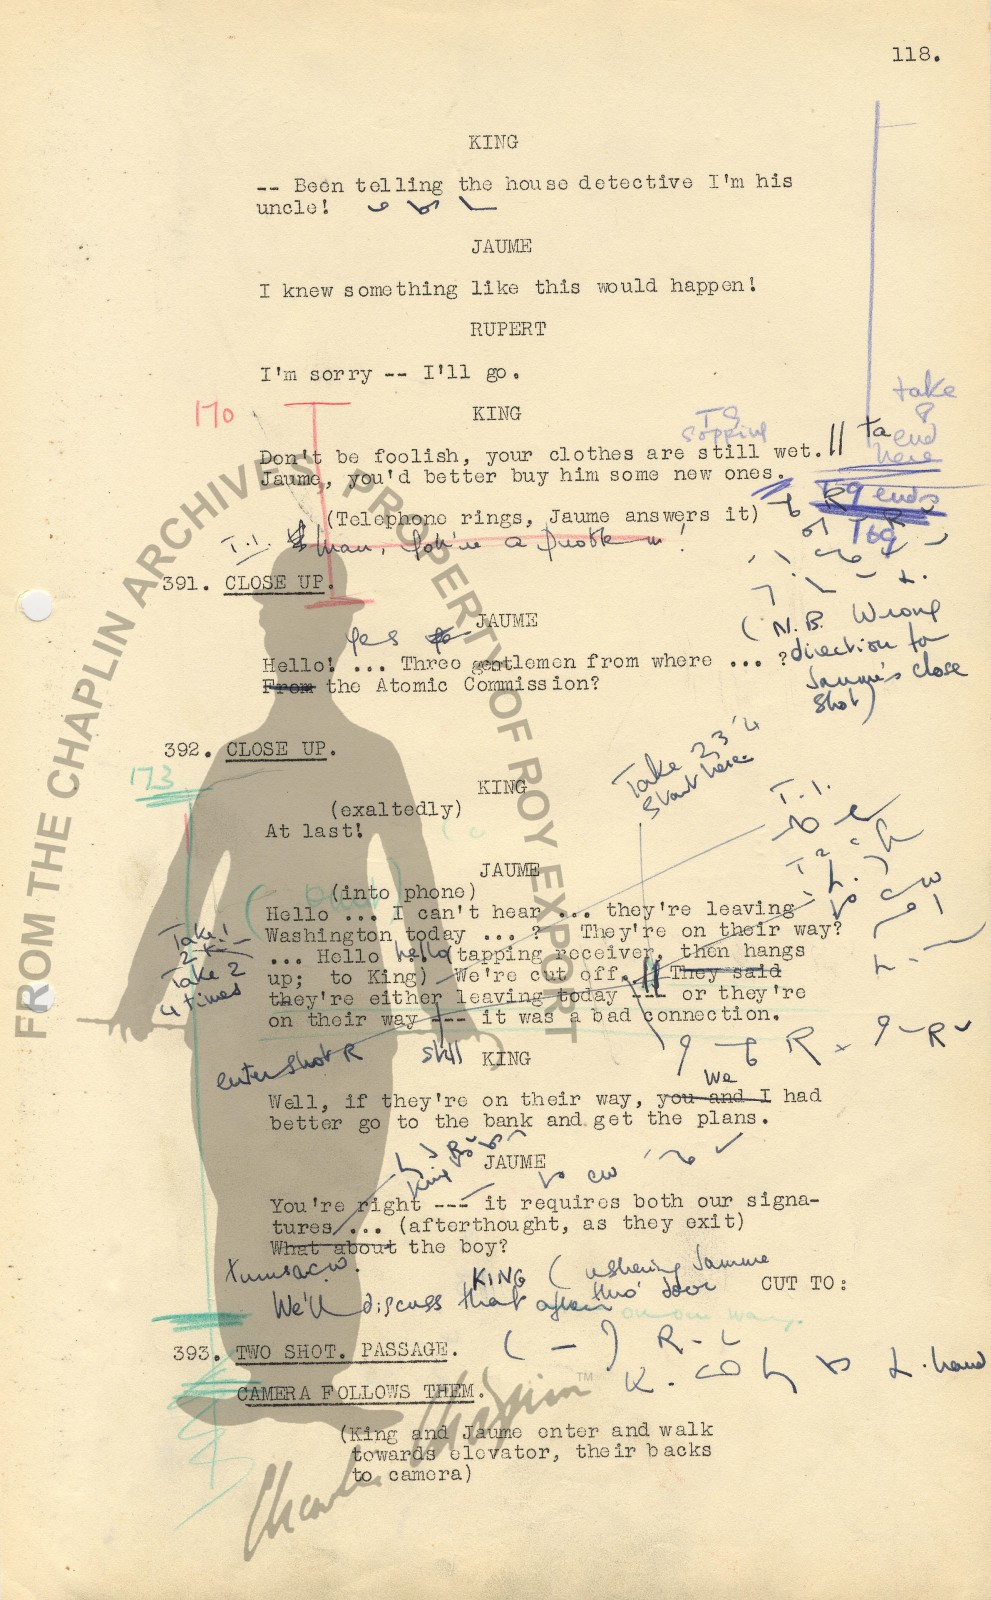 118.
KING
-- Been telling the house detective I'm his
uncle!
JAUME
I knew something like this would happen!
RUPERT
I'm sorry -- I'll go.
170
KING
take
8
end
here
T9
sopping
Don't be foolish, your clothes are still wet.
Jaume, you'd better buy him some new ones.
T9 ends
T69
(Telephone rings, Jaume answers it)
T.1.
391. CLOSE UP.
JAUME
yes
Hello! ... Three gentlemen from where ... ?
From the Atomic Commission?
(N.B. Wrong
direction for
Jaume's close
shot)
392. CLOSE UP.
173
Take 2 3 4
start here
KING
(exaltedly)
At last!
T.1.
JAUME
T2
(into phone)
Hello ... I can't hear ... they're leaving
Washington today ... ? They're on their way?
... Hello hello (tapping receiver, then hangs
up; to King) We're cut off. They said
they're either leaving today --- or they're
on their way -- it was a bad connection.
Take 1
2
Take 2
4 times
enter shot R
still
KING
We
Well, if they're on their way, you and I had
better go to the bank and get the plans.
JAUME
King
You're right --- it requires both our signa-
tures ... (afterthought, as they exit)
What about the boy?
KING (ushering Jaume
thro' door
We'll discuss that after
on our way.
CUT TO:
393. TWO SHOT. PASSAGE.
R-L
K.
L. hand
CAMERA FOLLOWS THEM.
(King and Jaume enter and walk
towards elevator, their backs
to camera)
FROM THE CHAPLIN ARCHIVES PROPERTY OF ROY EXPORT
Charles Chaplin™